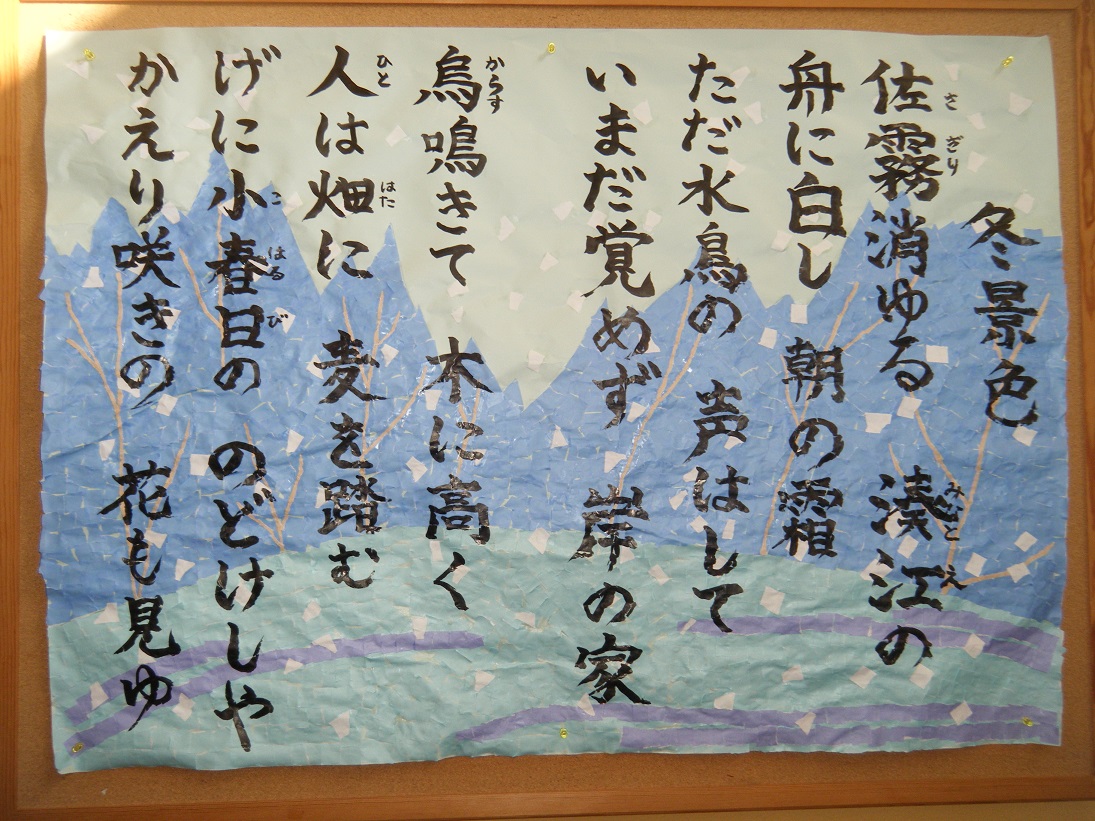 冬景色
佐霧消ゆる 湊江の
さぎり
みなとえ
舟に白し 朝の霜
ただ水鳥の 声はして
いまだ覚めず 岸の家
烏鳴きて 木に高く
からす
人は畑に 麦を踏む
ひと
はた
げに小春日の のどけしや
こはるび
かえり咲きの 花も見ゆ